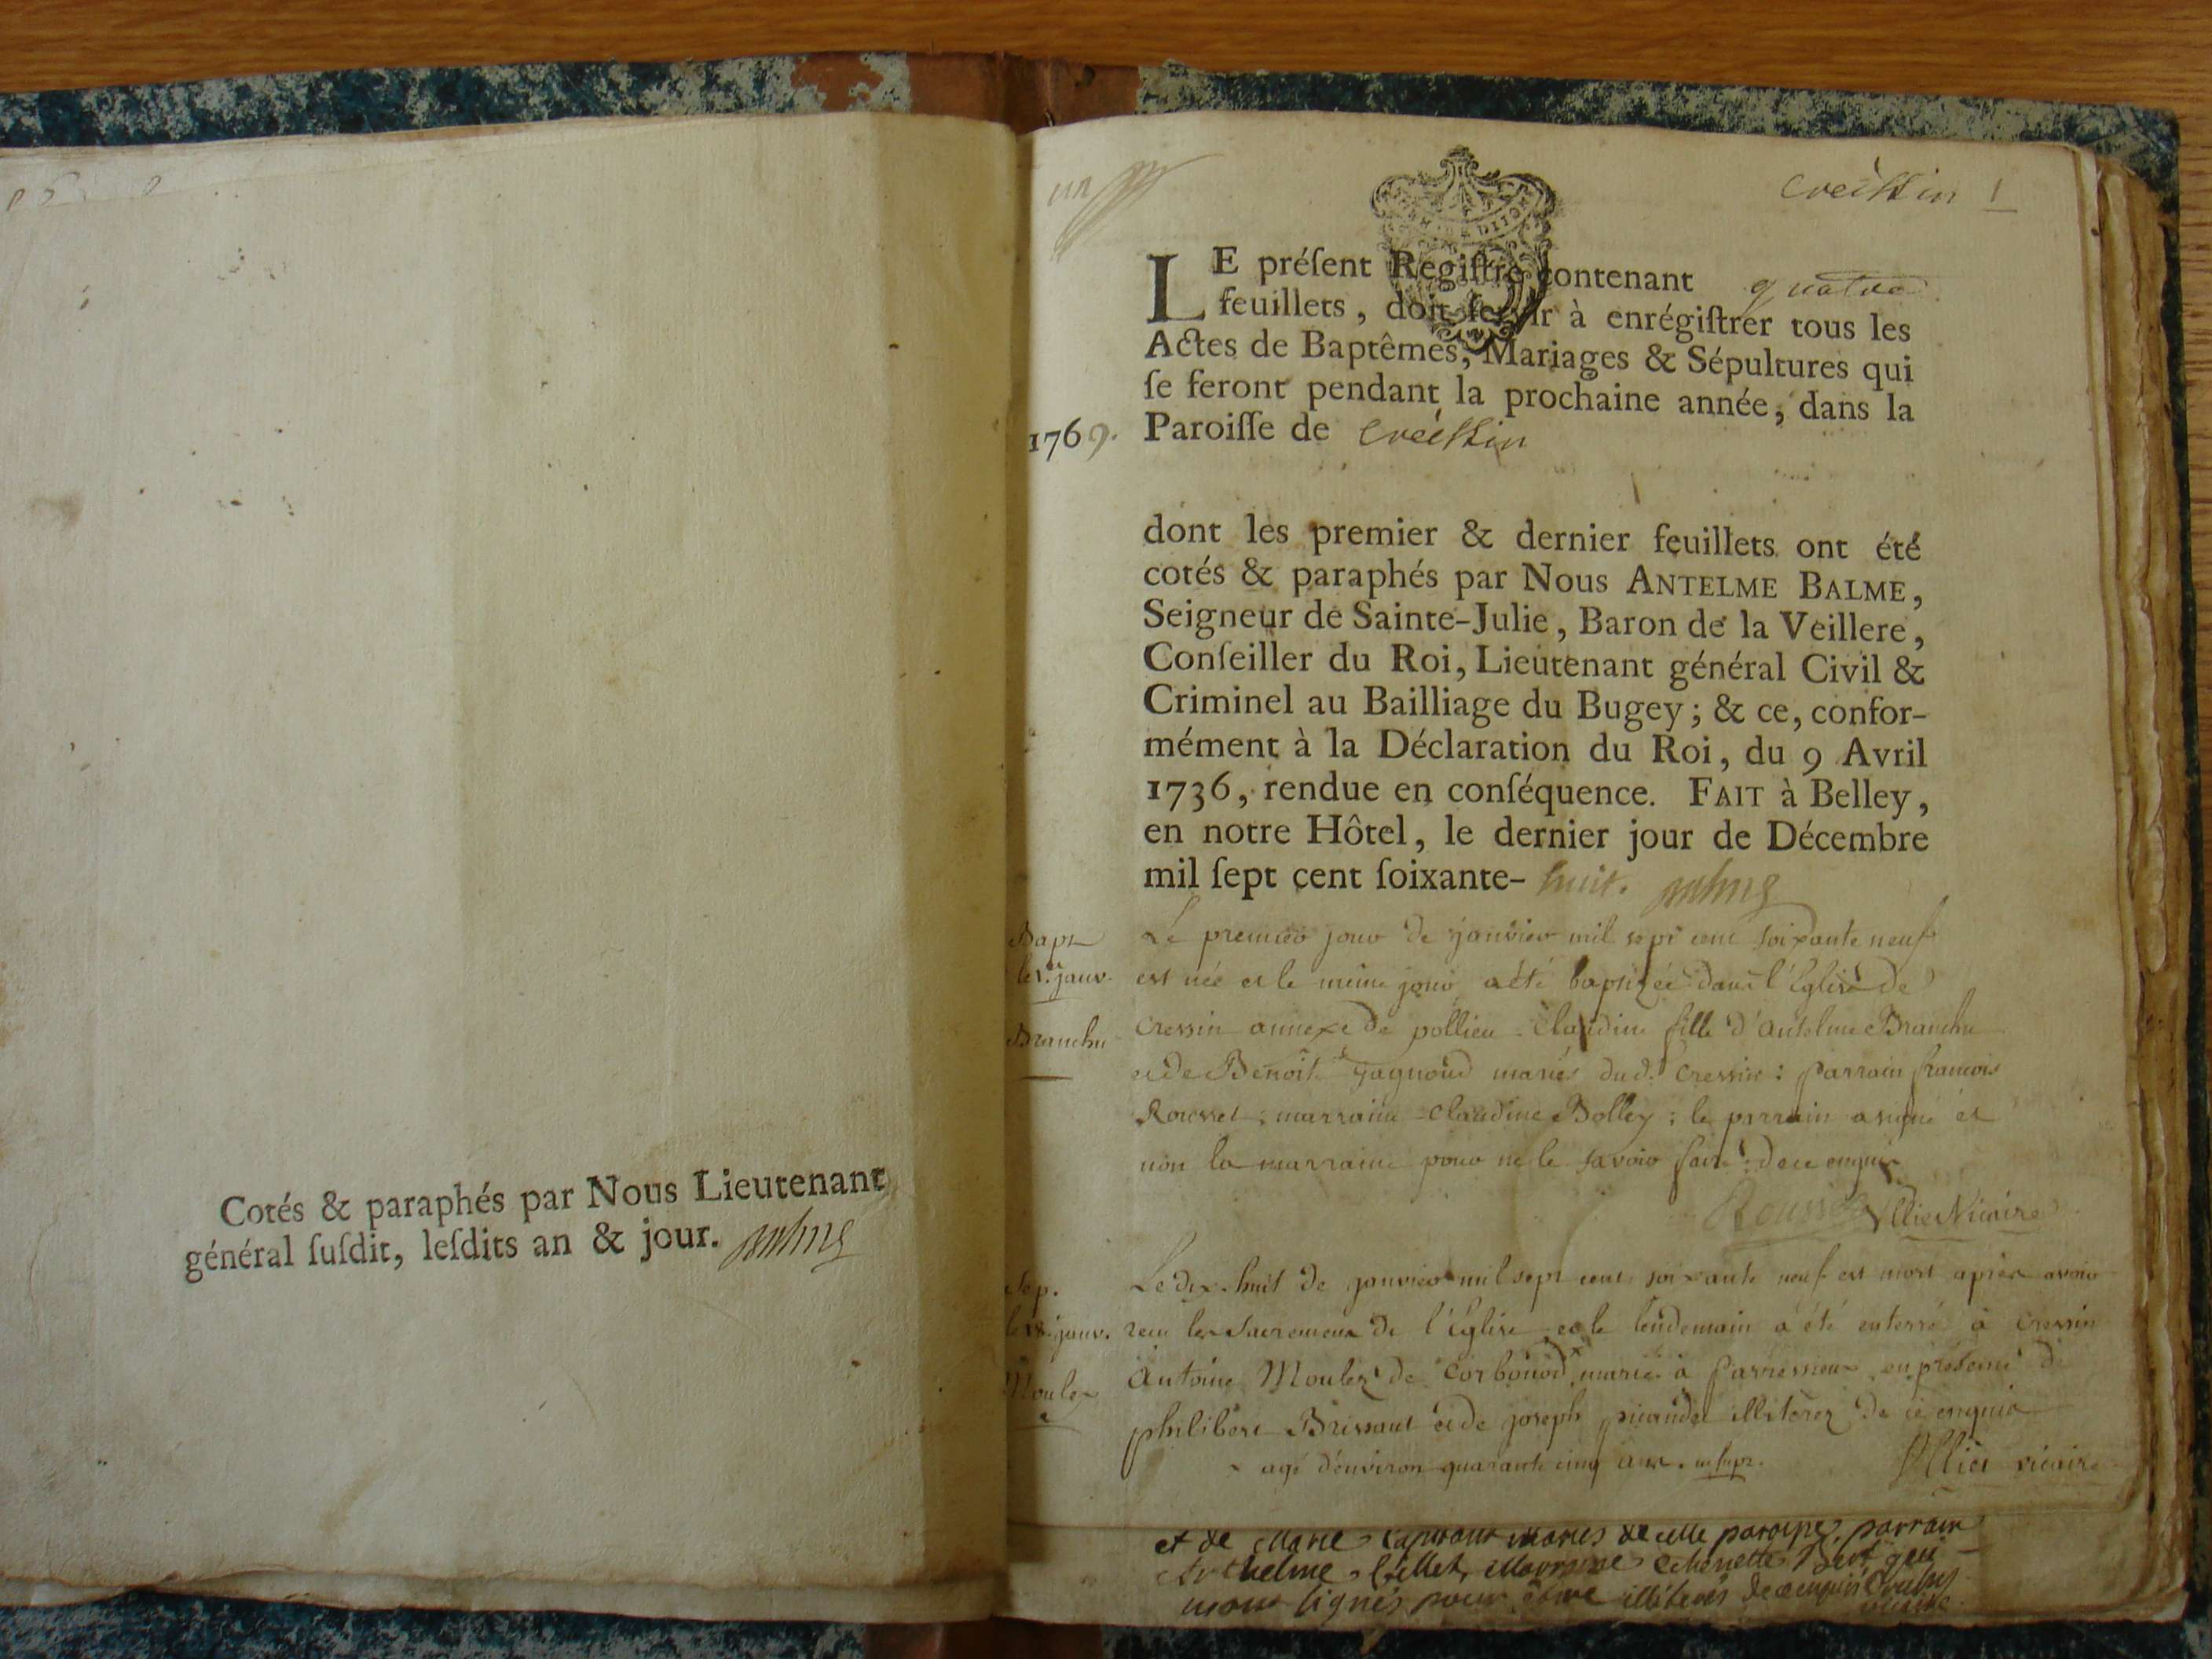 Cotés & paraphés par Nous Lieutenant
général ſuſdit, leſdits an & jour.
un
Creissin 1
LE préſent Regiſtre contenant quatre
feuillets, doit ſervir à enrégiſtrer tous les
Actes de Baptêmes, Mariages & Sépultures qui
ſe feront pendant la prochaine année, dans la
1769. Paroiſſe de Creissin
dont les premier & dernier feuillets ont été
cotés & paraphés par Nous ANTELME BALME,
Seigneur de Sainte-Julie, Baron de la Veillere,
Conſeiller du Roi, Lieutenant général Civil &
Criminel au Bailliage du Bugey; & ce, confor-
mément à la Déclaration du Roi, du 9 Avril
1736, rendue en conſéquence. FAIT à Belley,
en notre Hôtel, le dernier jour de Décembre
mil ſept cent ſoixante- huit.
Bapt Le premier jour de janvier mil sept cent soixante neuf
le 1.er janv. est née et le même jour a été baptizée dans l'Eglise de
Branchu Cressin annexe de pollieu Claudine fille d'Antelme Branchu
et de Benoite Gagnoud mariés dud. Cressin : parrain francois
Rousset ; marraine Claudine Bolley ; le parrain a signé et
non la marraine pour ne le savoir faire de ce enquis
Rousset Allier Vicaire
Sep. Le dix-huit de janvier mil sept cent soixante neuf est mort apres avoir
le 18. janv. recu les Sacremens de l'Eglise et le lendemain a été enterré à Cressin
Moulex Antoine Moulex de Corbonod marié à en présence de
philibert Brissaut et de joseph illiterez de ce enquis
x agé d'environ quarante cinq ans. ut supr. Allier vicaire
et de Marie mariés de cette paroisse, parrain
Anthelme Billet, Marraine
non signés pour être illiterés de ce enquis
vicaire